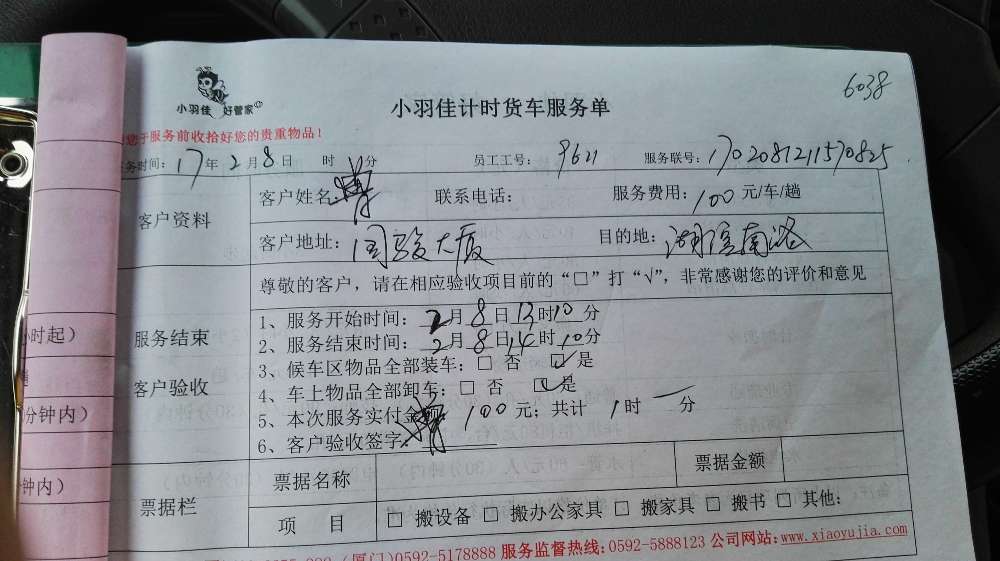 6038
小羽佳 好管家
小羽佳计时货车服务单
您于服务前收拾好您的贵重物品！
务时间：17年2月8日 时 分 员工工号：9621 服务联号：1702081211570825
客户资料
客户姓名 联系电话： 服务费用：100元/车/趟
客户地址：国骏大厦 目的地：湖滨南路
尊敬的客户，请在相应验收项目前的“□”打“√”，非常感谢您的评价和意见
服务结束
客户验收
1、服务开始时间：2月8日13时10分
2、服务结束时间：2月8日14时10分
3、候车区物品全部装车：□ 否 ☑是
4、车上物品全部卸车：□ 否 ☑是
5、本次服务实付金 100元；共计 1时 一 分
6、客户验收签字
小时起）
分钟内）
钟内）
票据栏
票据名称 票据金额
项 目 □ 搬设备 □ 搬办公家具 □ 搬家具 □ 搬书 □ 其他：
（厦门）0592-5178888 服务监督热线：0592-5888123 公司网站：www.xiaoyujia.com